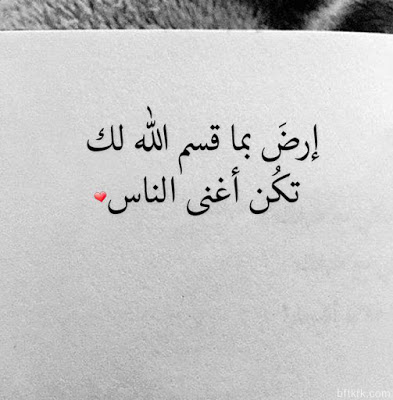 إرضَ بما قسم الله لك
تكُن أغنى الناس❤
bftkfk.com